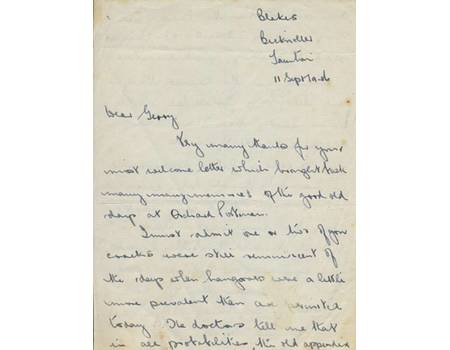 Blakes
Bicknoller
Taunton
11 Sept
Dear Gerry
Very many thanks for your
most welcome letter which brought back
many many memories of the good old
days at Orchard Portman.
I must admit one or two of your
cracks were still reminiscent of
the days when hangovers were a little
more prevalent than are permitted
today. The doctors tell me that
in all probabilities, the old appendix